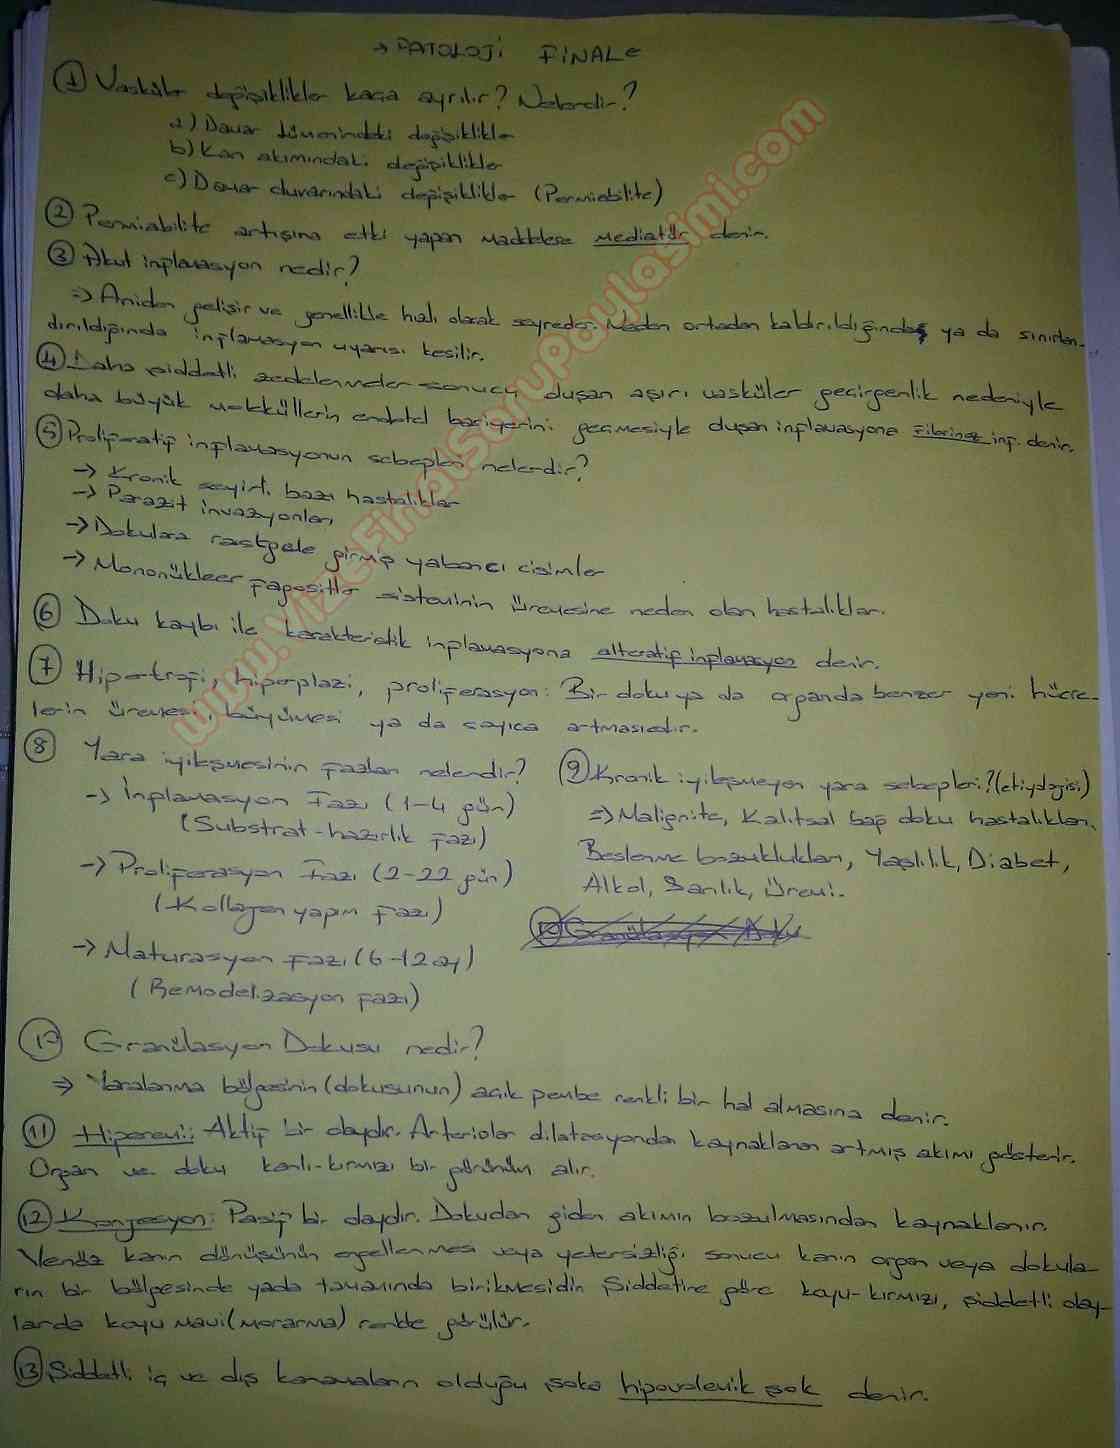 → PATOLOJİ FİNALE
① Vasküler değişiklikler kaça ayrılır? Nelerdir?
a) Damar lümenindeki değişiklikler
b) Kan akımındaki değişiklikler
c) Damar duvarındaki değişiklikler (Permiabilite)
② Permiabilite artışına etki yapan maddelere mediatör denir.
③ Akut inflamasyon nedir?
⇒ Aniden gelişir ve genellikle hızlı olarak seyreder. Neden ortadan kaldırıldığında ya da sınırlan-
dırıldığında inflamasyon uyarısı kesilir.
④ Daha şiddetli zedelenmeler sonucu oluşan aşırı vasküler geçirgenlik nedeniyle
daha büyük moleküllerin endotel bariyerini geçmesiyle oluşan inflamasyona fibrinöz inf. denir.
⑤ Proliferatif inflamasyonun sebepleri nelerdir?
→ Kronik seyirli bazı hastalıklar
→ Parazit invazyonları
→ Dokulara rastgele girmiş yabancı cisimler
→ Mononükleer fagositler sisteminin üremesine neden olan hastalıklar.
⑥ Doku kaybı ile karakteristik inflamasyona alteratif inflamasyon denir.
⑦ Hipertrofi, hiperplazi, proliferasyon: Bir doku ya da organda benzer yeni hücre-
lerin üremesi, büyümesi ya da sayıca artmasıdır.
⑧ Yara iyileşmesinin fazları nelerdir?
→ İnflamasyon Fazı (1-4 gün)
(Substrat-hazırlık fazı)
→ Proliferasyon Fazı (2-22 gün)
(Kollagen yapım fazı)
→ Maturasyon Fazı (6-12 ay)
(Remodelizasyon fazı)
⑨ Kronik iyileşmeyen yara sebepleri? (etiyolojisi)
⇒ Malignite, Kalıtsal bağ doku hastalıkları,
Beslenme bozuklukları, Yaşlılık, Diabet,
Alkol, Sarılık, Üremi.
⑩ Granülasyon Dokusu nedir?
⇒ Yaralanma bölgesinin (dokusunun) açık pembe renkli bir hal almasına denir.
⑪ Hiperemi: Aktif bir olaydır. Arterioler dilatasyondan kaynaklanan artmış akımı gösterir.
Organ ve doku kanlı-kırmızı bir görünüm alır.
⑫ Konjesyon: Pasif bir olaydır. Dokudan giden akımın bozulmasından kaynaklanır.
Venöz kanın dönüşünün engellenmesi veya yetersizliği sonucu kanın organ veya dokula-
rın bir bölgesinde yada tamamında birikmesidir. Şiddetine göre koyu-kırmızı, şiddetli olay-
larda koyu mavi (morarma) renkte görülür.
⑬ Şiddetli iç ve dış kanamaların olduğu şoka hipovolemik şok denir.
www.VizeFinalSoruPaylasimi.com